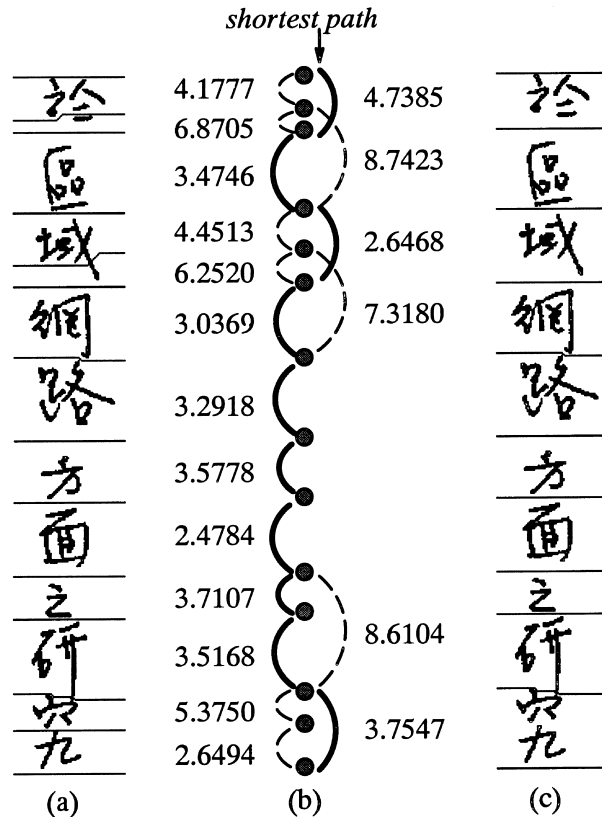 shortest path
於區域網路方面之研究
4.1777
6.8705
3.4746
4.4513
6.2520
3.0369
3.2918
3.5778
2.4784
3.7107
3.5168
5.3750
2.6494
4.7385
8.7423
2.6468
7.3180
8.6104
3.7547
於區域網路方面之研究
(a) (b) (c)